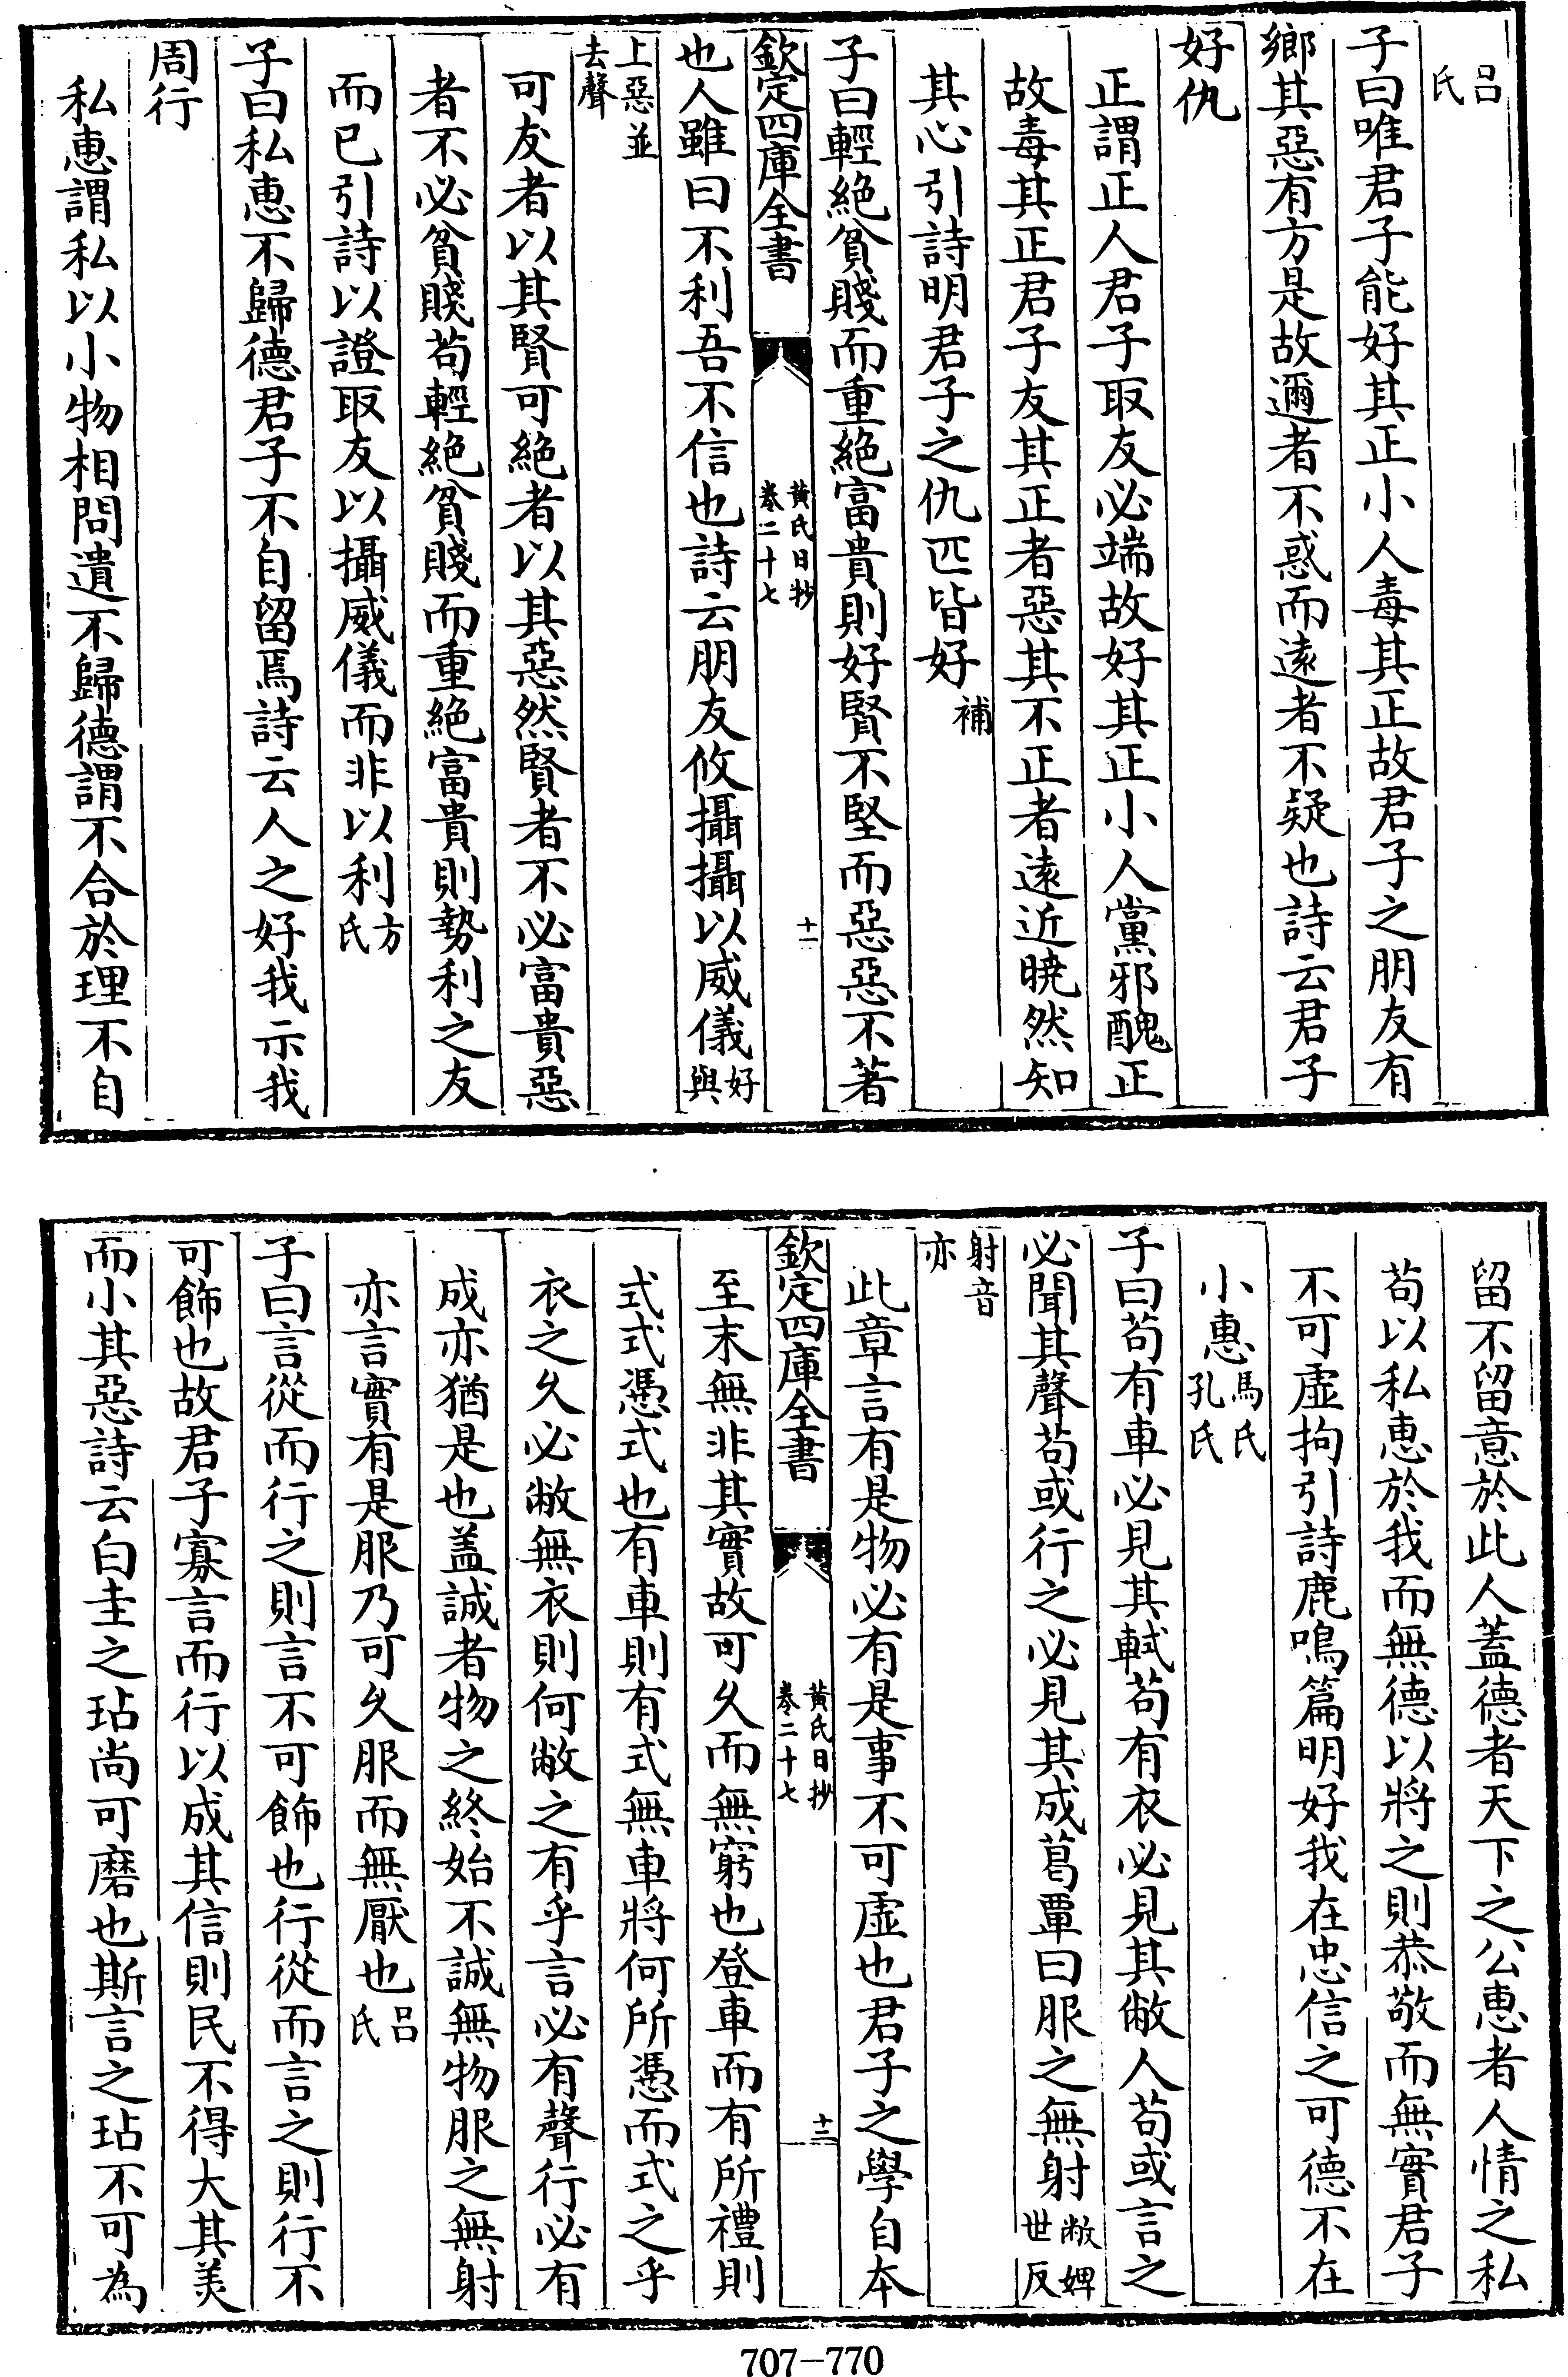 吕氏
子曰唯君子能好其正小人毒其正故君子之朋友有
鄉其惡有方是故邇者不惑而逺者不疑也詩云君子
好仇
正謂正人君子取友必端故好其正小人黨邪醜正
故毒其正君子友其正者惡其不正者逺近曉然知
其心引詩明君子之仇匹皆好補
子曰輕絶貧賤而重絶富貴則好賢不堅而惡惡不著
欽定四庫全書 黄氏日抄卷二十七 十一
也人雖曰不利吾不信也詩云朋友攸攝攝以威儀好與
上惡並去聲
可友者以其賢可絶者以其惡然賢者不必富貴惡
者不必貧賤苟輕絶貧賤而重絶富貴則勢利之友
而已引詩以證取友以攝威儀而非以利方氏
子曰私惠不歸德君子不自留焉詩云人之好我示我
周行
私惠謂私以小物相問遺不歸德謂不合於理不自
留不留意於此人蓋德者天下之公惠者人情之私
苟以私惠於我而無德以將之則恭敬而無實君子
不可虚拘引詩鹿鳴篇明好我在忠信之可德不在
小惠馬氏孔氏
子曰苟有車必見其軾苟有衣必見其敝人苟或言之
必聞其聲苟或行之必見其成葛覃曰服之無射敝婢世反
射音亦
此章言有是物必有是事不可虚也君子之學自本
欽定四庫全書 黄氏日抄卷二十七 十二
至末無非其實故可久而無窮也登車而有所禮則
式式憑式也有車則有式無車將何所憑而式之乎
衣之久必敝無衣則何敝之有乎言必有聲行必有
成亦猶是也盖誠者物之終始不誠無物服之無射
亦言實有是服乃可久服而無厭也吕氏
子曰言從而行之則言不可飾也行從而言之則行不
可飾也故君子寡言而行以成其信則民不得大其美
而小其惡詩云白圭之玷尚可磨也斯言之玷不可為
707-770